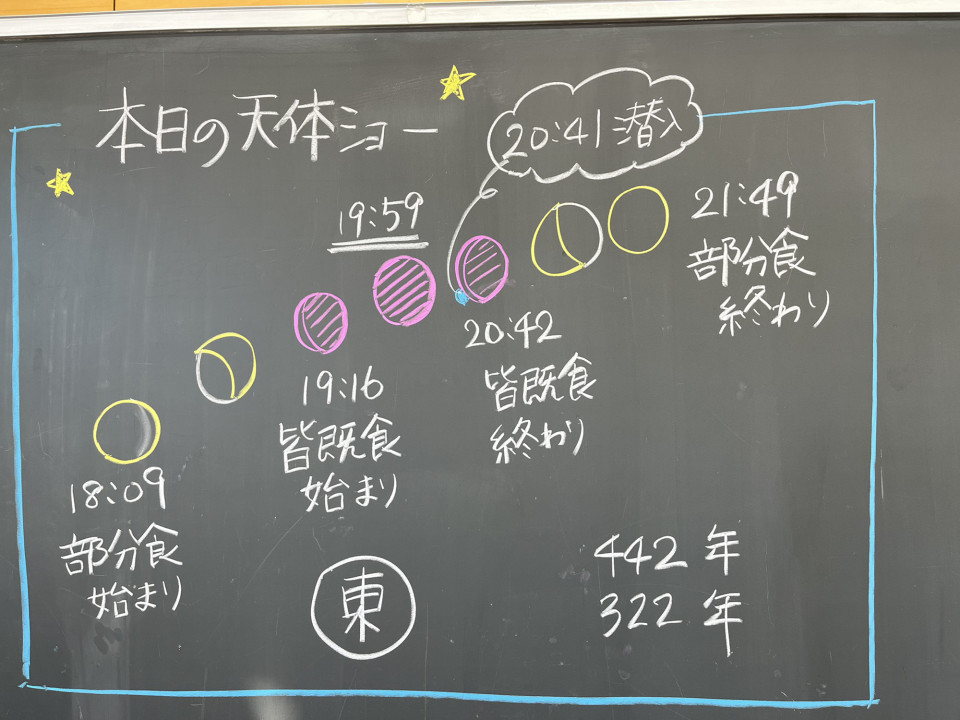 本日の天体ショー
20:41潜入
19:59
21:49
部分食
終わり
20:42
皆既食
終わり
19:16
皆既食
始まり
18:09
部分食
始まり
東
442年
322年